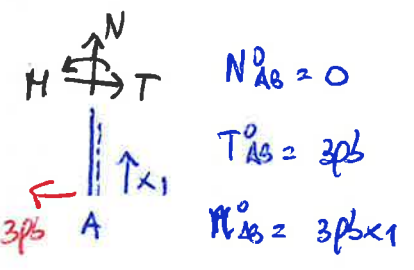 N
M T
x1
3pb A
N⁰AB = 0
T⁰AB = 3pb
M⁰AB = 3pbx1